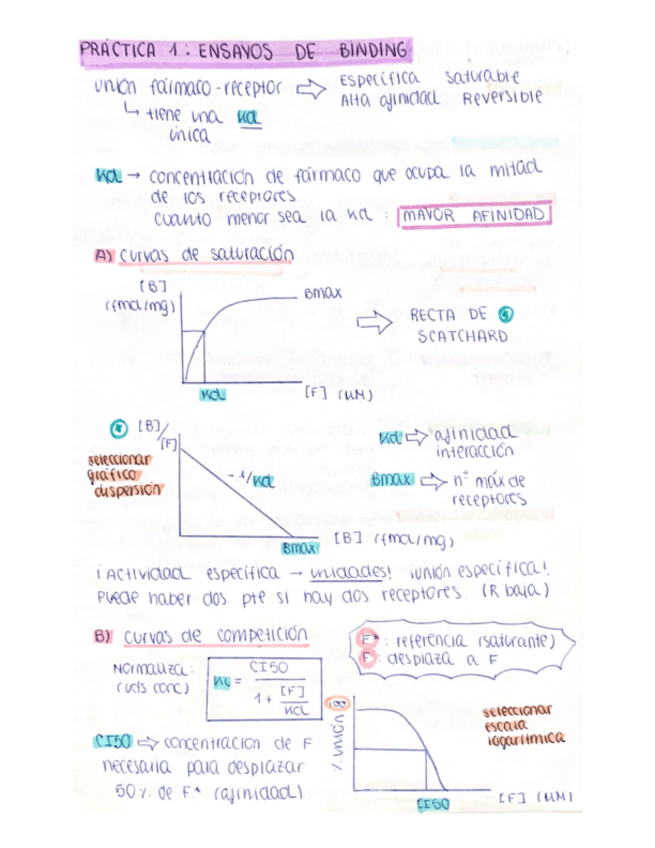 PRÁCTICA 1: ENSAYOS DE BINDING
unión fármaco-receptor ⇨ Específica saturable
Alta afinidad Reversible
↳ tiene una Kd
única
Kd → concentración de fármaco que ocupa la mitad
de los receptores.
cuanto menor sea la Kd : MAYOR AFINIDAD
A) Curvas de saturación
[B]
(fmol/mg)
Bmax
Kd
[F] (nM)
⇨ RECTA DE
SCATCHARD
[B]/[F]
seleccionar
gráfico
dispersión
-1/Kd
Bmax
[B] (fmol/mg)
Kd ⇨ afinidad
interacción
Bmax ⇨ nº máx de
receptores
¡Actividad específica → unidades! ¡unión específica!
Puede haber dos pte si hay dos receptores. (R baja)
B) Curvas de competición
F* : referencia (saturante)
F : desplaza a F
Normaliza:
(uds conc)
Ki = CI50 / 1 + [F]/Kd
CI50 ⇨ concentración de F
necesaria para desplazar
50% de F* (afinidad)
% unión
CI50
[F] (nM)
seleccionar
escala
logarítmica